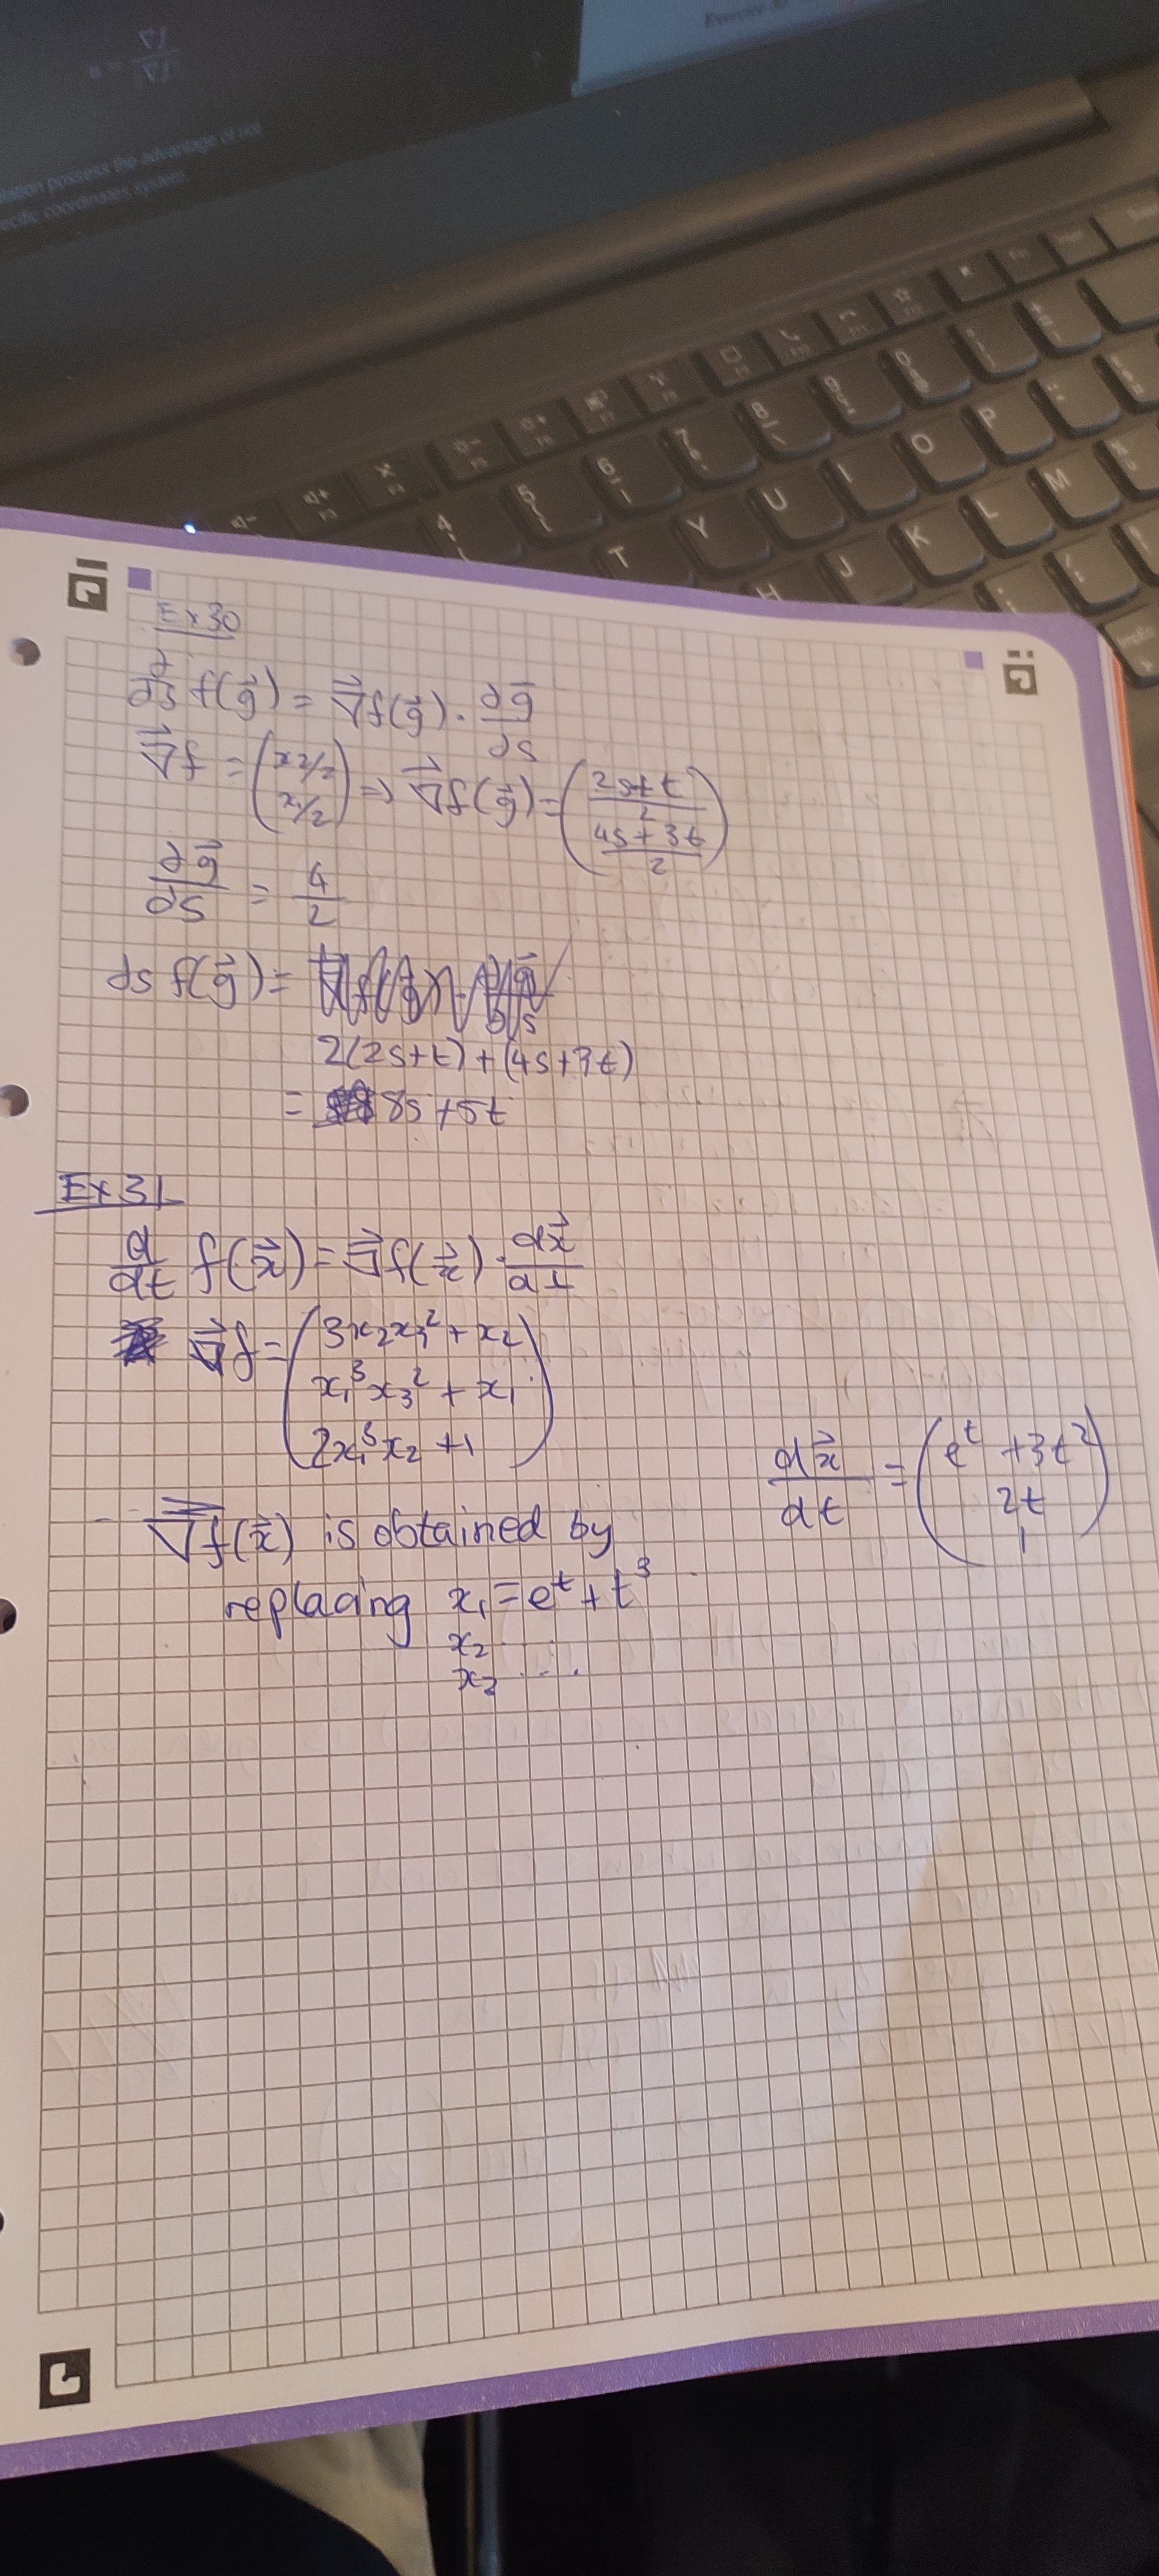 lation possess the advantage of not
ecific coordinates system.
Exercise
Ex 30
∂/∂s f(g⃗) = ∇⃗f(g⃗) · ∂g⃗/∂s
∇⃗f = (x2/2 x1/2) ⇒ ∇⃗f(g⃗) = ((2s+t)/2 (4s+3t)/2)
∂g⃗/∂s = 4 2
∂s f(g⃗) =
2(2s+t) + (4s+3t)
= 8s + 5t
Ex 31
d/dt f(x⃗) = ∇⃗f(x⃗) · dx⃗/dt
∇⃗f = (3x2x3² + x2
x1³x3² + x1
2x1³x2 + 1)
dx⃗/dt = (e^t + 3t²
2t
1)
∇⃗f(x⃗) is obtained by
replacing x1 = e^t + t³
x2 ...
x3 ...
4
5
6
7
8
9
0
T
Y
U
I
O
P
H
J
K
L
M